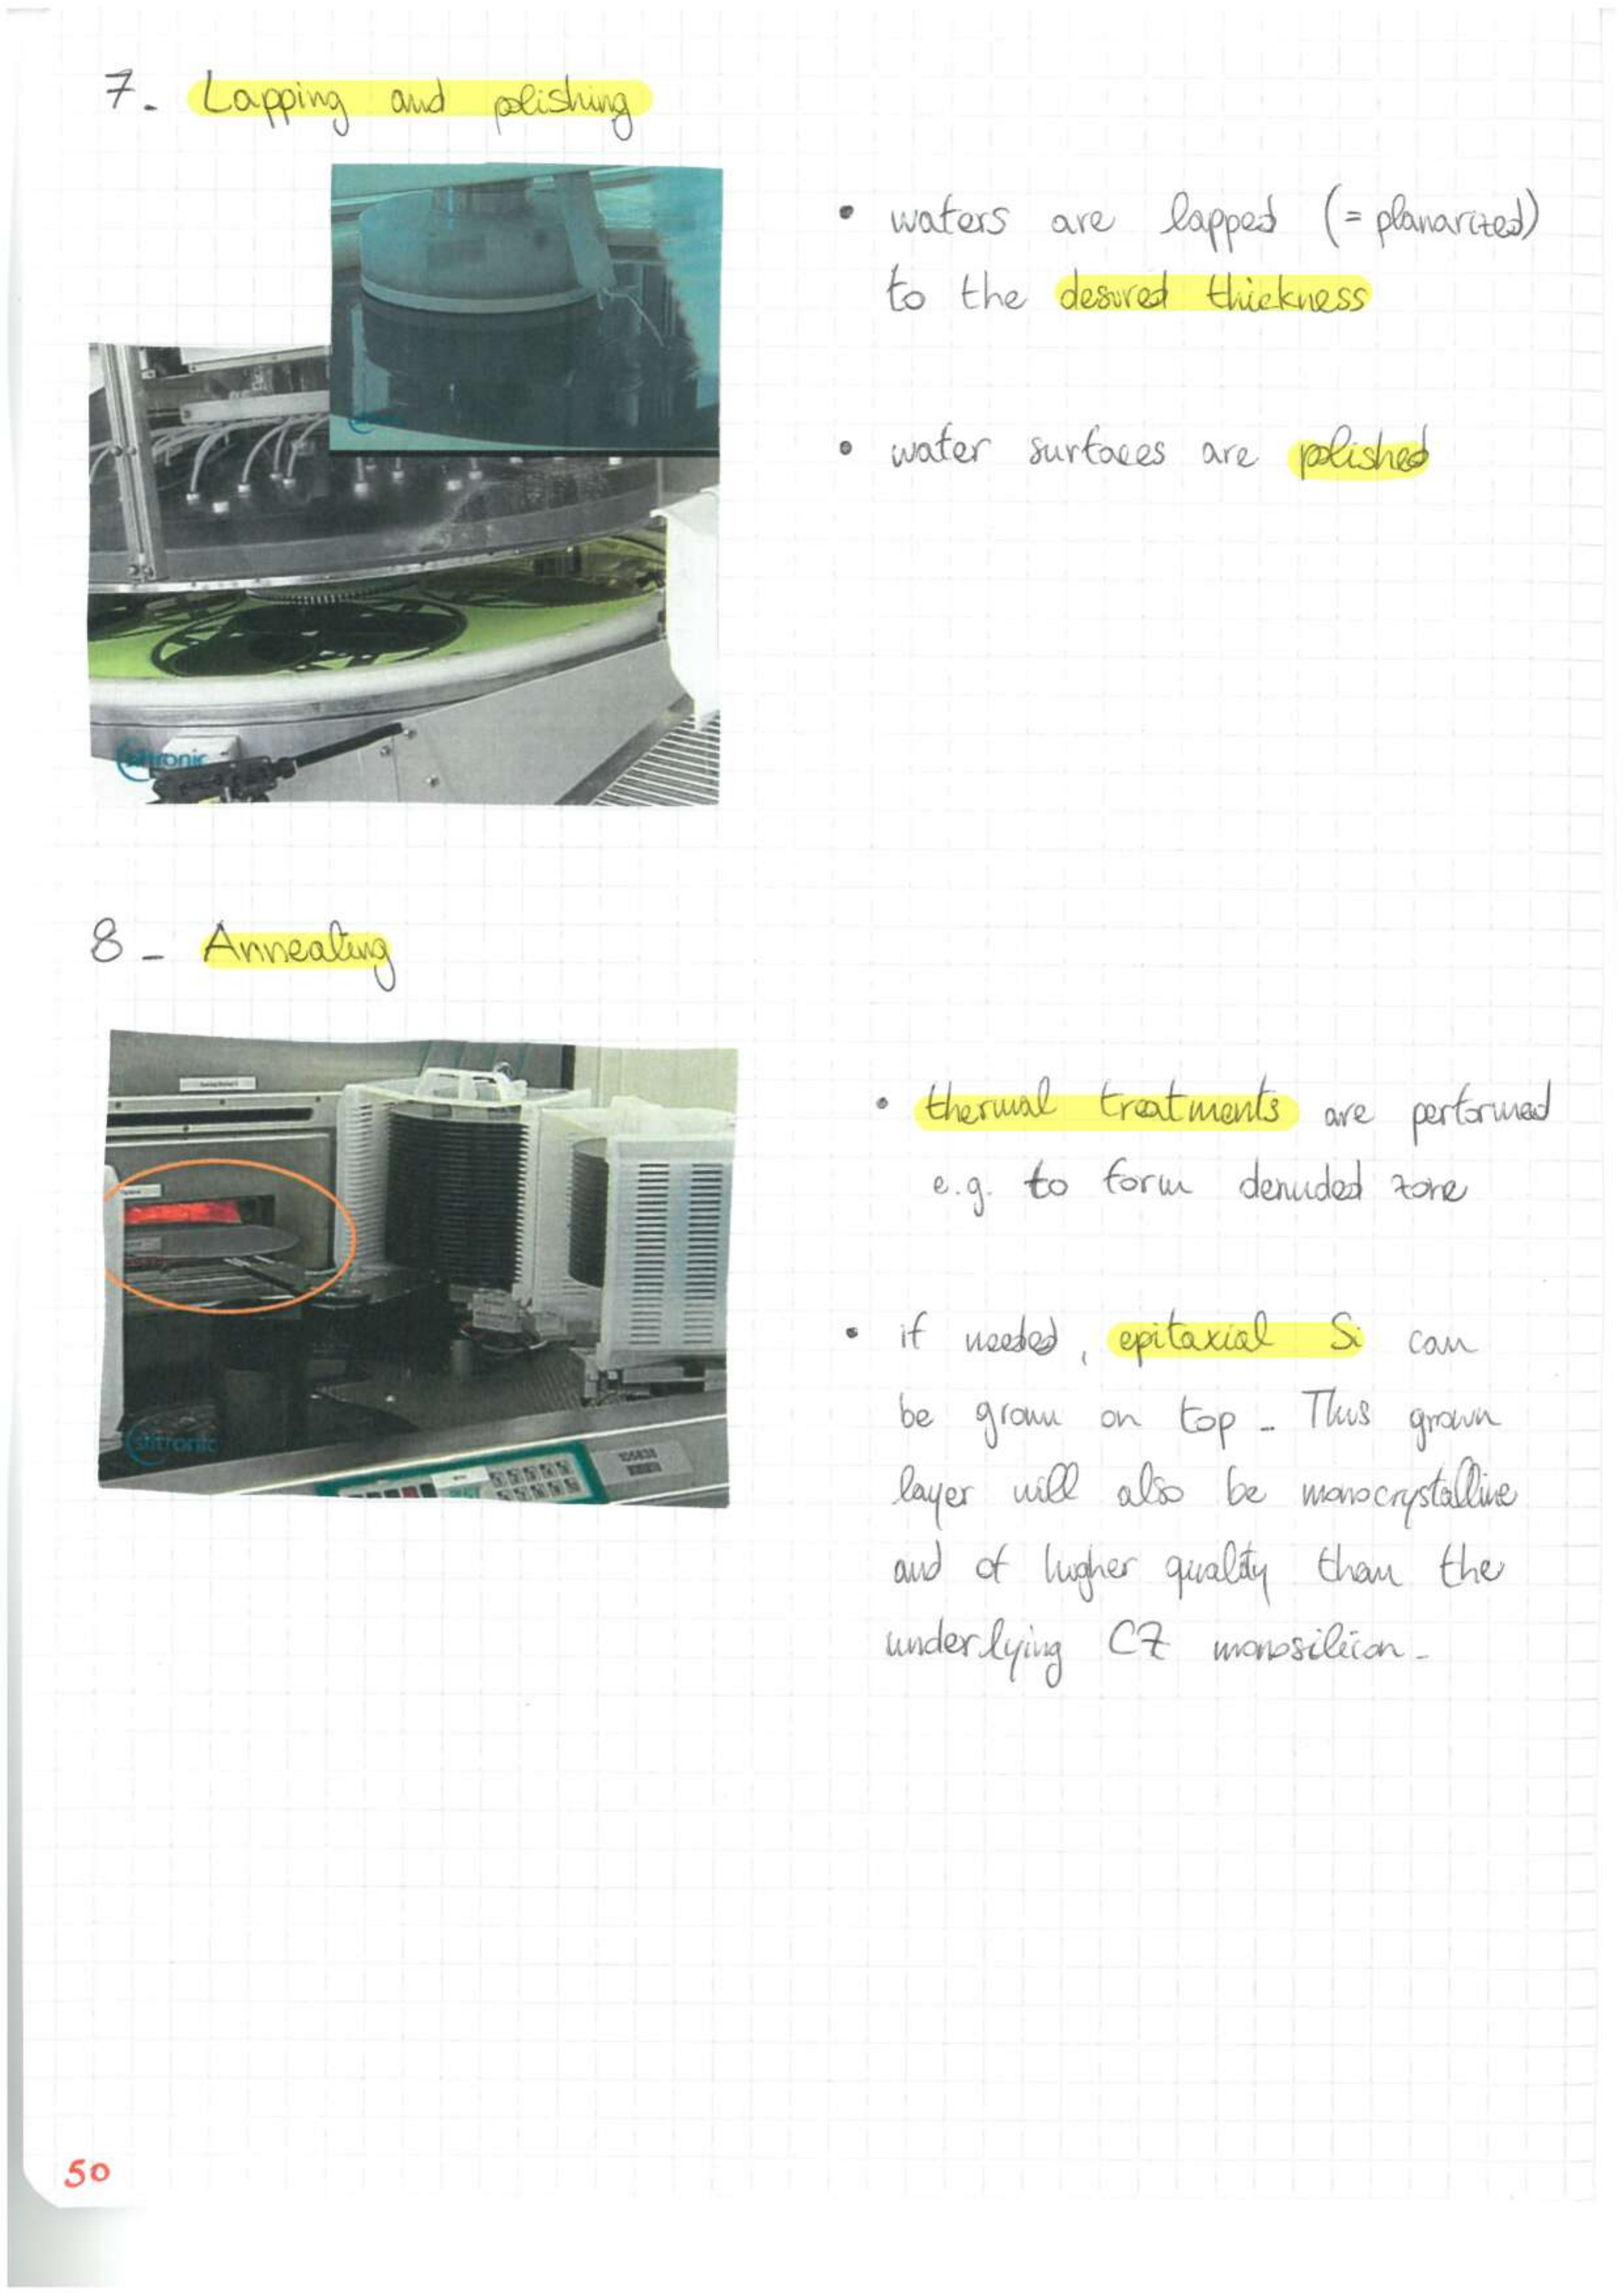 7- Lapping and polishing
• wafers are lapped (= planarized)
to the desired thickness
• wafer surfaces are polished
siltronic
8 - Annealing
• thermal treatments are performed
e.g. to form denuded zone
• if needed, epitaxial Si can
be grown on top - This grown
layer will also be monocrystalline
and of higher quality than the
underlying CZ monosilicon -
siltronic
105838
50